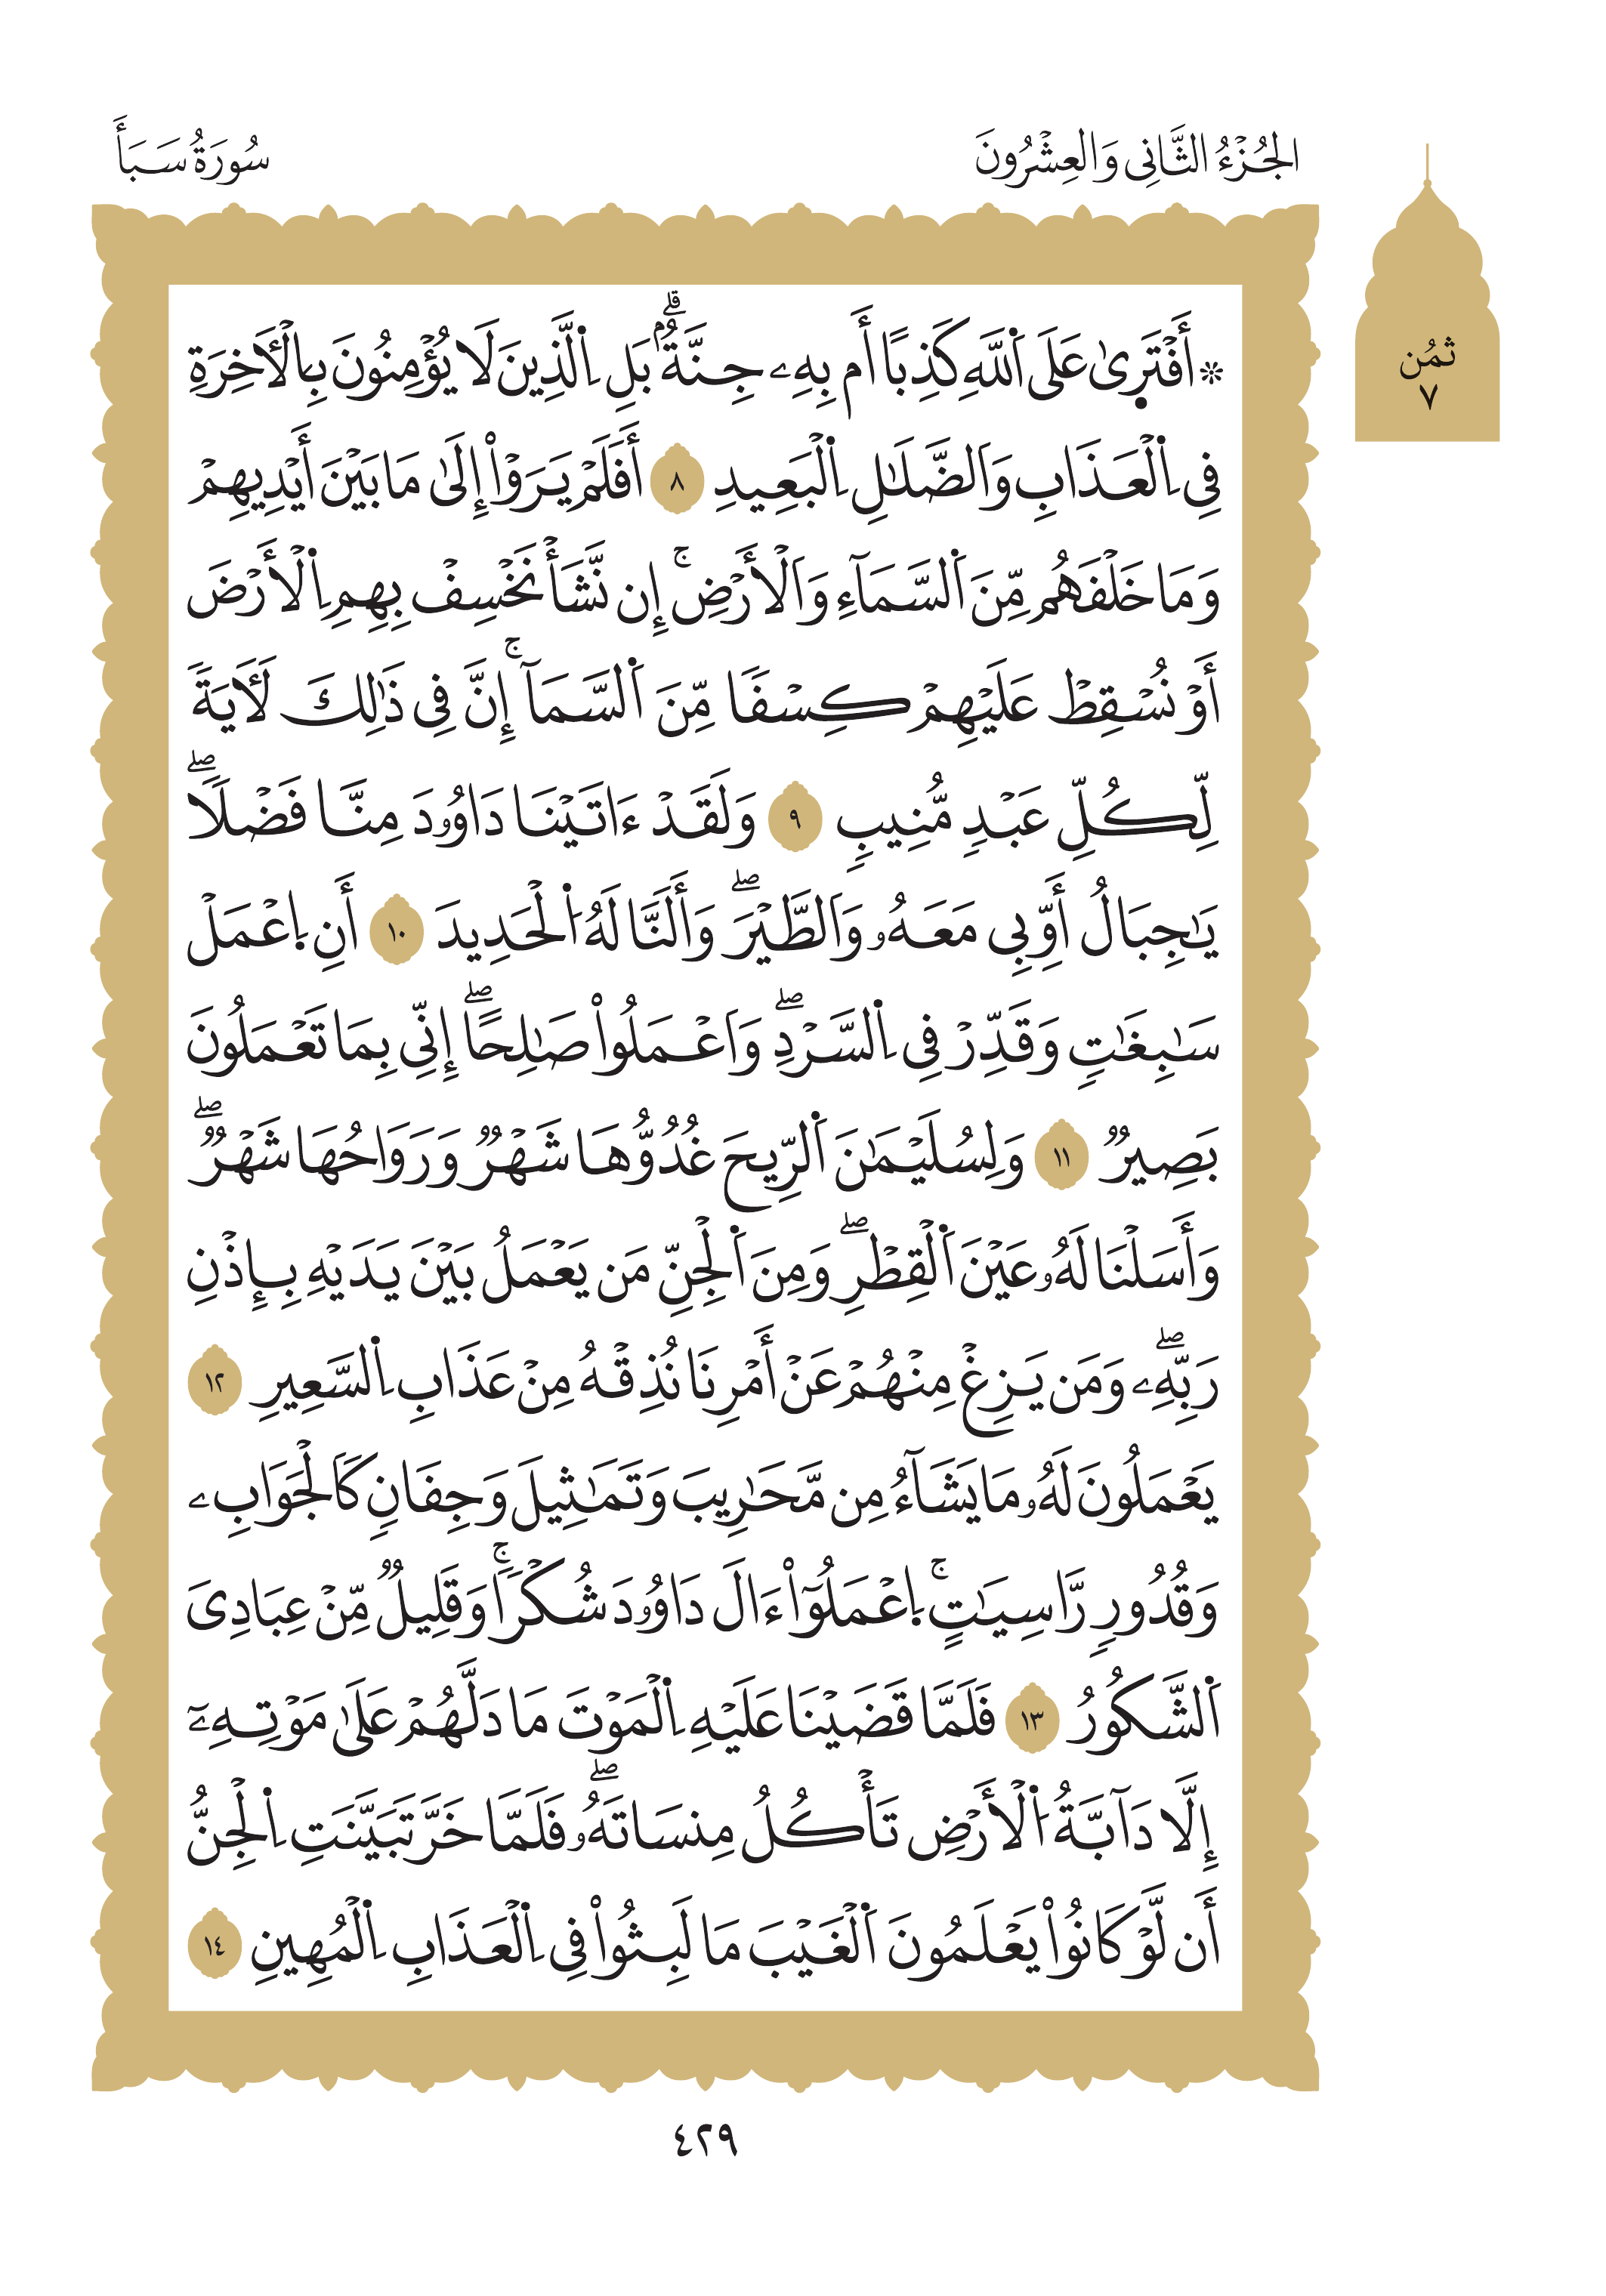 الجُزْءُ الثَّانِى وَالعِشْرُونَ
سُورَةُ سَبَأَ
ثمُن
٧
۞ أَفْتَر۪ىٰ عَلَى اَ۬للَّهِ كَذِبًا أَم بِهِۦ جِنَّةُۢۖ بَلِ اِ۬لَّذِينَ لَا يُؤْمِنُونَ بِالْأَخِرَةِ
فِى اِ۬لْعَذَابِ وَالضَّلَٰلِ اِ۬لْبَعِيدِ ٨ أَفَلَمْ يَرَوْاْ إِلَىٰ مَا بَيْنَ أَيْدِيهِمْ
وَمَا خَلْفَهُم مِّنَ اَ۬لسَّمَآءِ وَالْأَرْضِۚ إِن نَّشَأْ نَخْسِفْ بِهِمِ اِ۬لْأَرْضَ
أَوْ نُسْقِطْ عَلَيْهِمْ كِسْفًا مِّنَ اَ۬لسَّمَآۚ إِنَّ فِى ذَٰلِكَ لَأَيَةً
لِّكُلِّ عَبْدٍ مُّنِيبٍ ٩ وَلَقَدْ ءَاتَيْنَا دَاوُۥدَ مِنَّا فَضْلًاۖ
يَٰجِبَالُ أَوِّبِى مَعَهُۥ وَالطَّيْرَۖ وَأَلَنَّا لَهُ اُ۬لْحَدِيدَ ١٠ أَنِ اِ۪عْمَلْ
سَٰبِغَٰتٍ وَقَدِّرْ فِى اِ۬لسَّرْدِۖ وَاعْمَلُواْ صَٰلِحًاۖ إِنِّى بِمَا تَعْمَلُونَ
بَصِيرٌ ١١ وَلِسُلَيْمَٰنَ اَ۬لرِّيحَ غُدُوُّهَا شَهْرٌ وَرَوَاحُهَا شَهْرٌۖ
وَأَسَلْنَا لَهُۥ عَيْنَ اَ۬لْقِطْرِۖ وَمِنَ اَ۬لْجِنِّ مَن يَعْمَلُ بَيْنَ يَدَيْهِ بِإِذْنِ
رَبِّهِۦۖ وَمَن يَزِغْ مِنْهُمْ عَنْ أَمْرِنَا نُذِقْهُ مِنْ عَذَابِ اِ۬لسَّعِيرِ ١٢
يَعْمَلُونَ لَهُۥ مَا يَشَآءُ مِن مَّحَٰرِيبَ وَتَمَٰثِيلَ وَجِفَانٍ كَالْجَوَابِۦ
وَقُدُورٍ رَّاسِيَٰتٍۚ اِ۪عْمَلُوٓاْ ءَالَ دَاوُۥدَ شُكْرًاۚ وَقَلِيلٌ مِّنْ عِبَادِىَ
اَ۬لشَّكُورُ ١٣ فَلَمَّا قَضَيْنَا عَلَيْهِ اِ۬لْمَوْتَ مَا دَلَّهُمْ عَلَىٰ مَوْتِهِۦٓ
إِلَّا دَآبَّةُ اُ۬لْأَرْضِ تَأْكُلُ مِنسَاتَهُۥۖ فَلَمَّا خَرَّ تَبَيَّنَتِ اِ۬لْجِنُّ
أَن لَّوْ كَانُواْ يَعْلَمُونَ اَ۬لْغَيْبَ مَا لَبِثُواْ فِى اِ۬لْعَذَابِ اِ۬لْمُهِينِ ١٤
٤٢٩